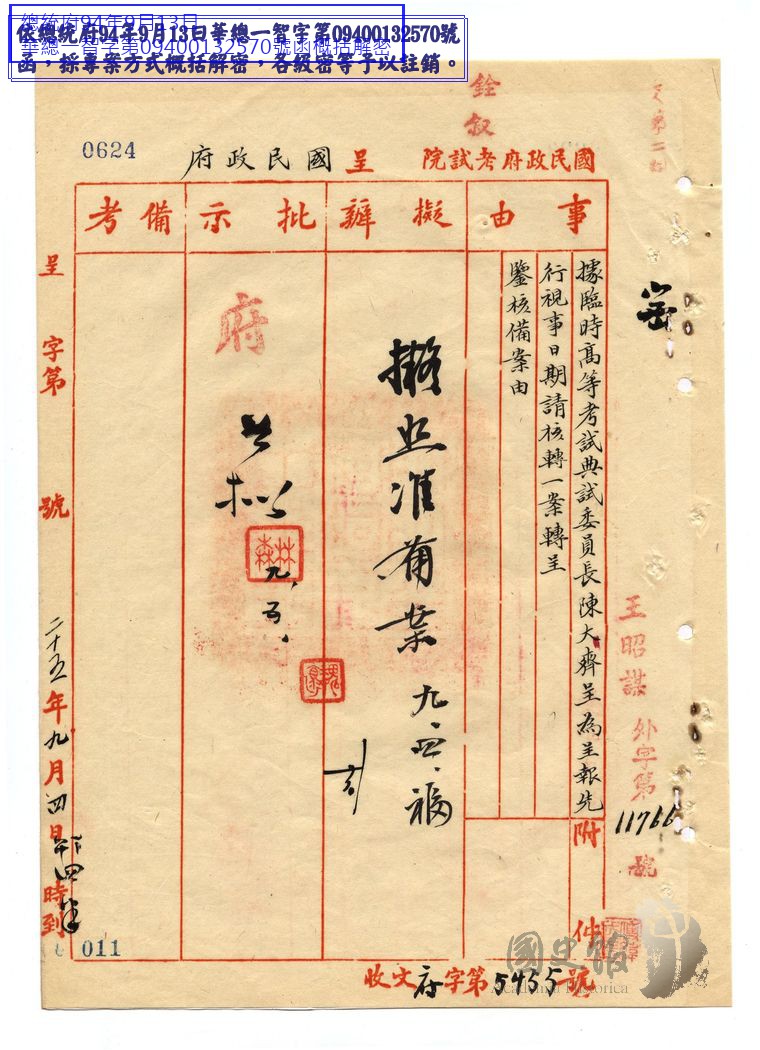 總統府94年9月13日
華總一智字第09400132570號函概括解密
依總統府94年9月13日華總一智字第09400132570號
函，採專案方式概括解密，各級密等予以註銷。
銓叙
0624
國民政府考試院
呈
國民政府
事由
擬辦
批示
備考
據臨時高等考試典試委員長陳大齊呈為呈報先
行視事日期請核轉一案轉呈
鑒核備案由
附件
擬照准備案
九、四、
府
林森
九、五、
王昭謀
外字第11766號
呈字第號
二十五年九月四日
時到
011
收文府字第5455號
國史館
Academia Historica